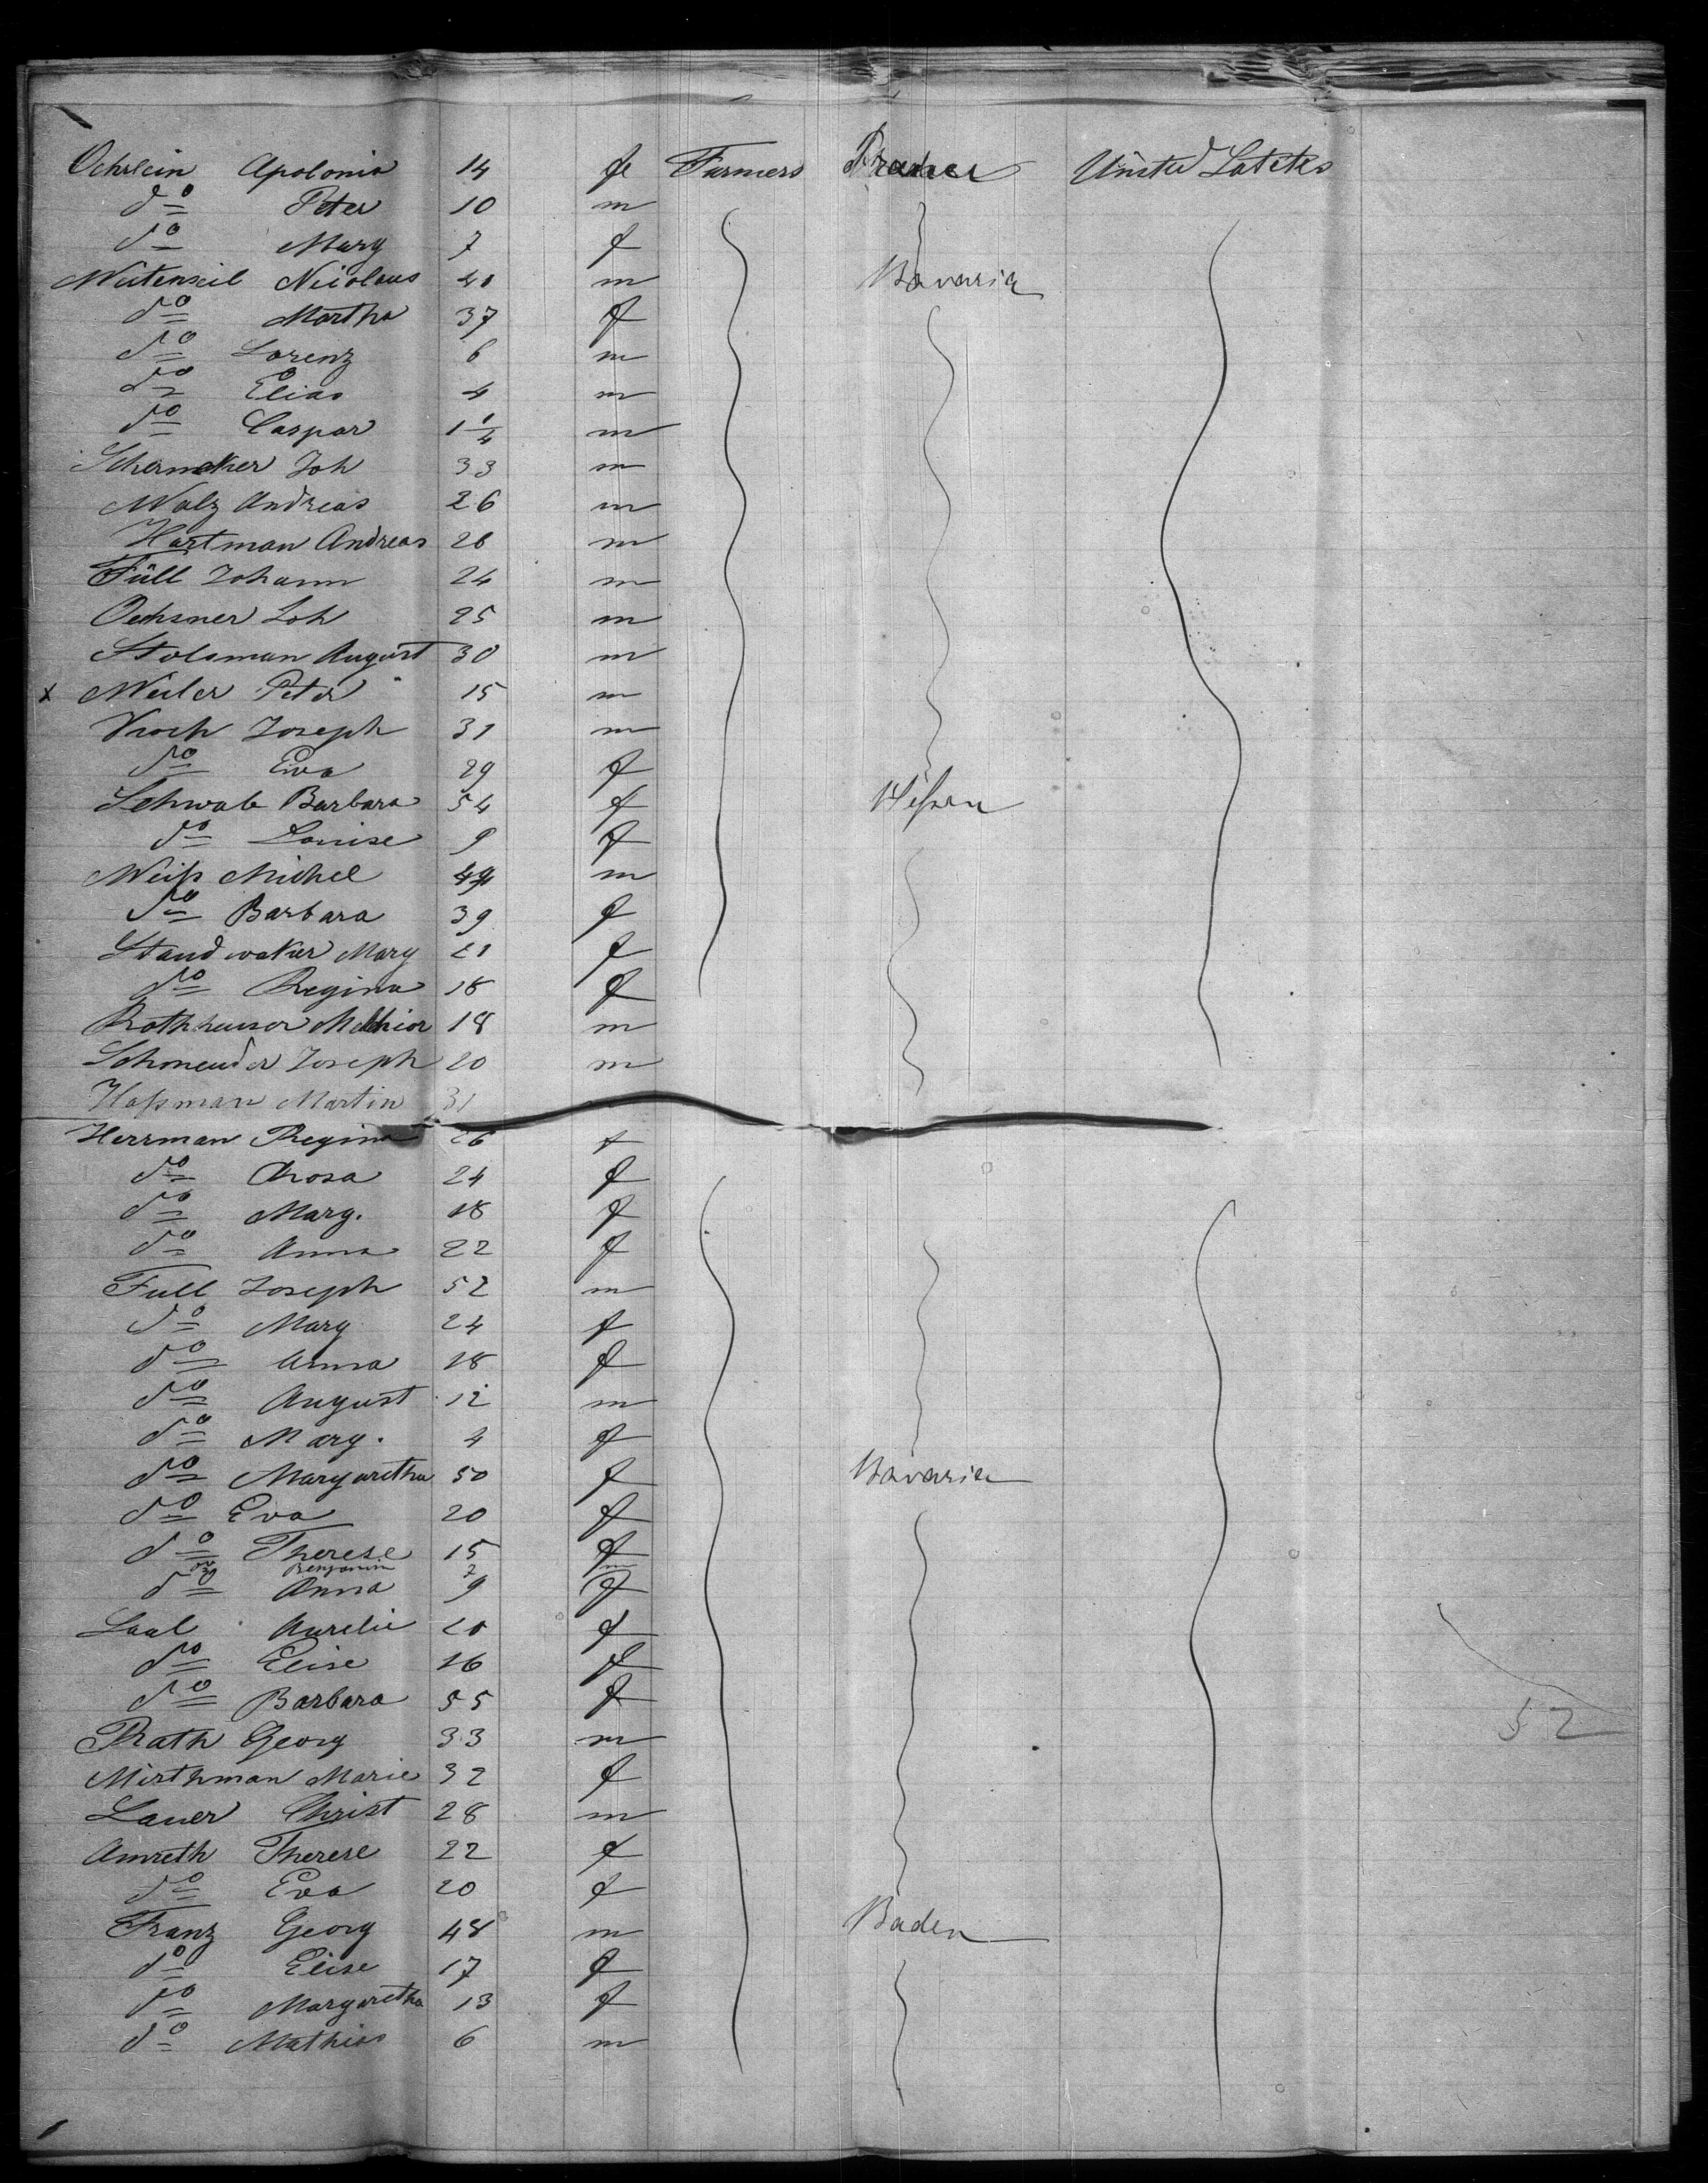 Ochrlein Apolonia 14 fe Farmers United Statets
do Peter 10 m
do Marg 7 f
Weitenseil Nicolaus 40 m Bavaria
do Martha 37 f
do Lorenz 6 m
do Elias 4 m
do Caspar 1 1/4 m
Schernecker Joh 33 m
Walz Andreas 26 m
Hartman Andreas 26 m
Füll Johann 24 m
Oechsner Joh 25 m
Stolsman August 30 m
x Weiler Peter 15 m
Kroch Joseph 31 m
do Eva 29 f
Schwab Barbara 54 f Hessen
do Louise 9 f
Weiß Michel 49 m
do Barbara 39 f
Standwaker Mary 21 f
do Regina 18 f
Rothhauser Melchior 18 m
Schoneuder Joseph 20 m
Hoßman Martin 31
Herrman Regina 26 f
do Rosa 24 f
do Marg. 18 f
do Anna 22 f
Full Joseph 52 m
do Mary 24 f
do Anna 18 f
do August 12 m
do Marg. 4 f
do Margaretha 50 f Bavaria
do Eva 20 f
do Therese 15 f
do Benjamin 2 m
do Anna 9 f
Laal Aurelie 20 f
do Elise 16 f
do Barbara 55 f
Rath Georg 33 m
52
Mirthman Marie 32 f
Lauer Christ 28 m
Amreth Therese 22 f
do Eva 20 f
Franz Georg 48 m Baden
do Elise 17 f
do Margaretha 13 f
do Mathias 6 m